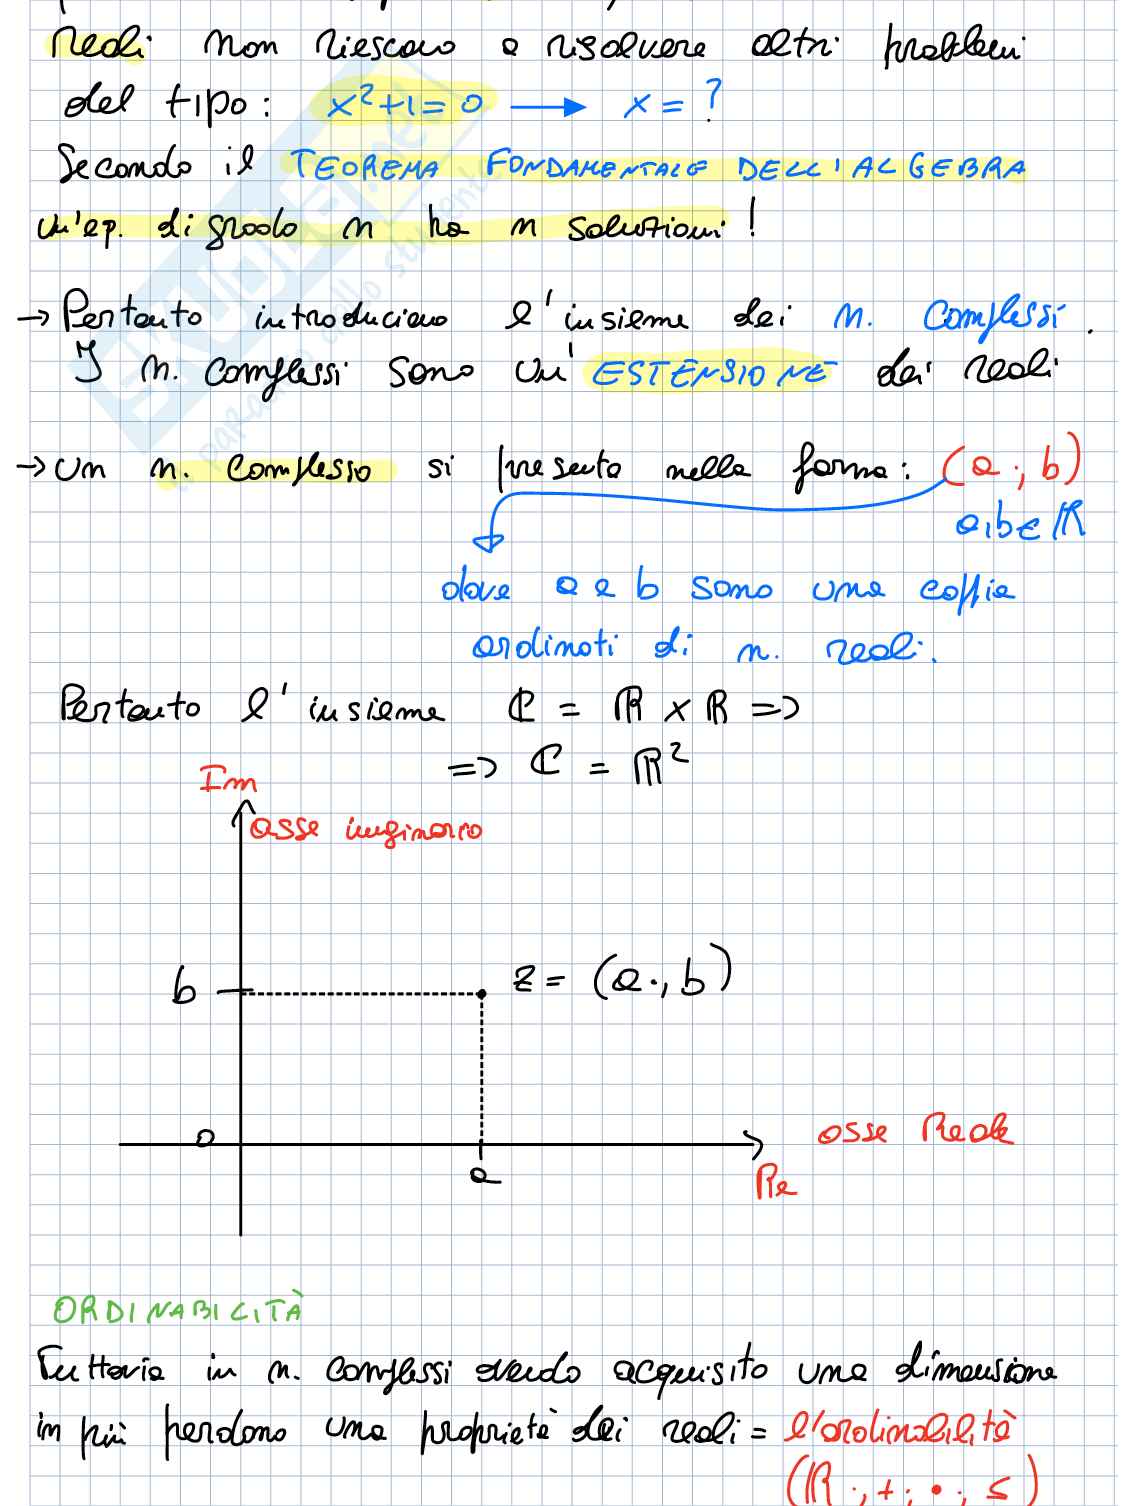 reali non riescono a risolvere altri problemi
del tipo: x²+1=0 → x = ?
Secondo il TEOREMA FONDAMENTALE DELL'ALGEBRA
un'eq. di grado n ha n soluzioni!
→ Pertanto introduciamo l'insieme dei n. complessi.
I n. complessi sono un' ESTENSIONE dei reali
→ Un n. complesso si presenta nella forma: (a ; b)
a,b∈ℝ
dove a e b sono una coppia
ordinati di n. reali.
Pertanto l'insieme ℂ = ℝ × ℝ =>
=> ℂ = ℝ²
Im
asse imginario
b z = (a ; b)
0
asse Reale
a
Re
ORDINABILITÀ
Tuttavia in n. complessi avendo acquisito una dimensione
in più perdono una proprietà dei reali = l'ordinabilità
(ℝ ; + ; • ; ≤)